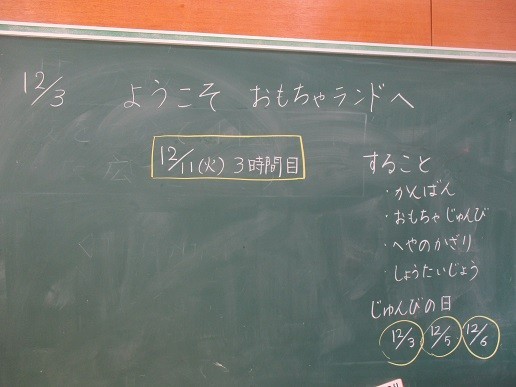 12/3 ようこそ おもちゃランドへ
12/11(火) 3時間目
すること
・かんばん
・おもちゃじゅんび
・へやのかざり
・しょうたいじょう
じゅんびの日
12/3 12/5 12/6